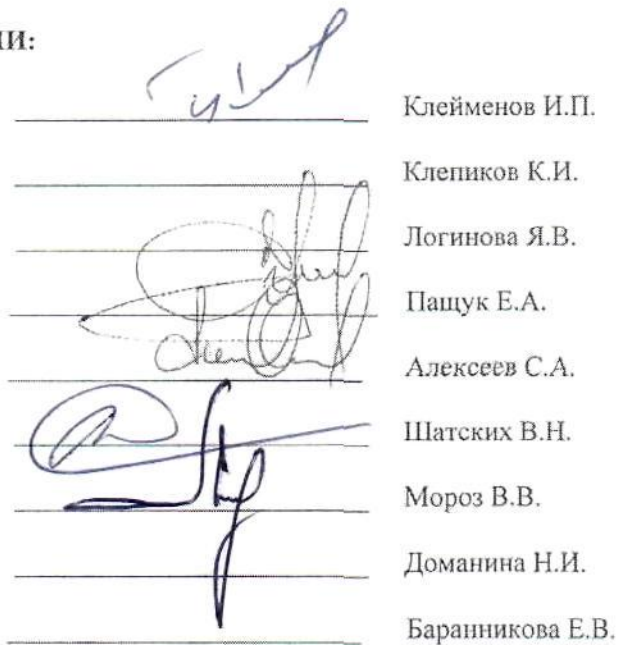 ИИ:
Клейменов И.П.
Клепиков К.И.
Логинова Я.В.
Пащук Е.А.
Алексеев С.А.
Шатских В.Н.
Мороз В.В.
Доманина Н.И.
Баранникова Е.В.